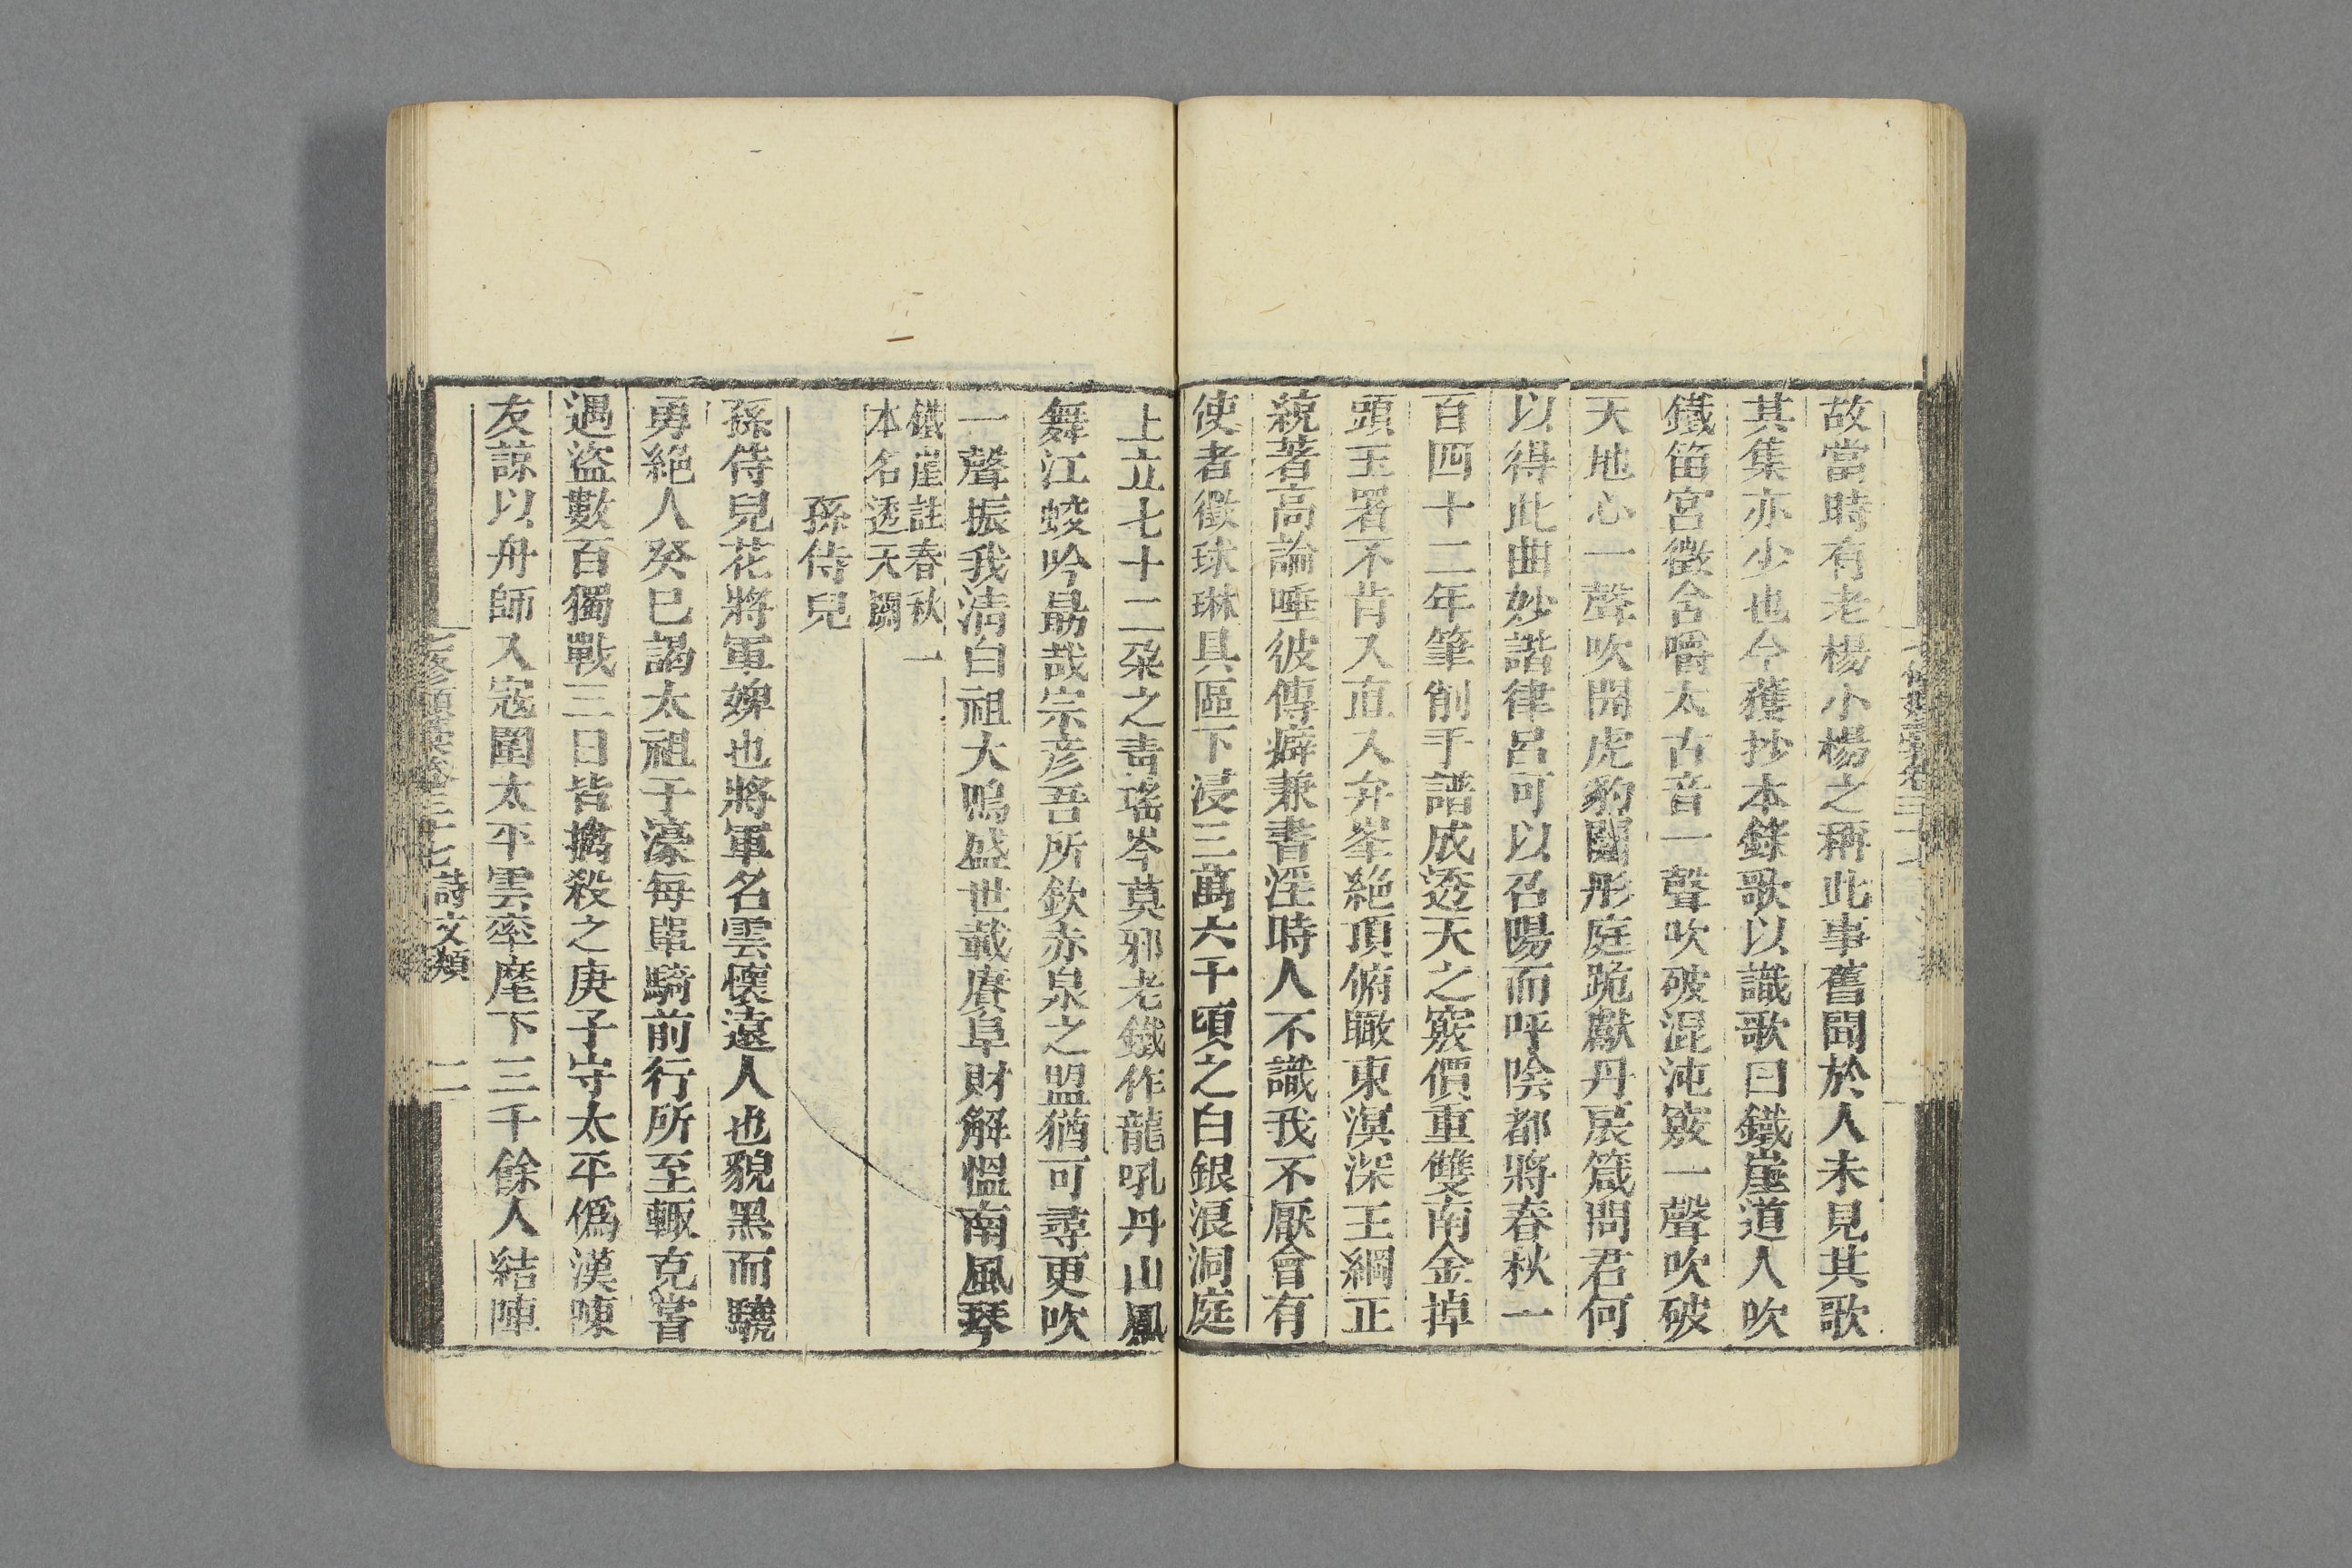 故當時有老楊小楊之稱此事舊聞於人未見其歌
其集亦少也今獲抄本錄歌以識歌曰鐵崖道人吹
鐵笛宮徵含嚼太古音一聲吹破混沌竅一聲吹破
天地心一聲吹開虎豹關彤庭跪獻丹扆箴問君何
以得此曲妙諧律呂可以召陽而呼陰都將春秋一
百四十二年筆削手譜成透天之竅價重雙南金掉
頭玉署不肯入直入弁峯絶頂俯瞰東溟深王綱正
統著高論唾彼傳癖兼書淫時人不識我不厭會有
使者徵球琳具區下浸三萬六千頃之白銀浪洞庭
上立七十二朶之青瑤岑莫邪老鐵作龍吼丹山鳳
舞江蛟吟勗哉宗彦吾所欽赤泉之盟猶可尋更吹
一聲振我清白祖大鳴盛世載賡阜財解慍南風琴
鐵崖註春秋一
本名透天關
孫侍兒
孫侍兒花將軍婢也將軍名雲懷遠人也貌黑而驍
勇絕人癸巳謁太祖于濠每單騎前行所至輙克嘗
遇盜數百獨戰三日皆擒殺之庚子守太平僞漢陳
友諒以舟師入寇圍太平雲率麾下三千餘人結陣
七修類藁卷三十七 詩文類 二